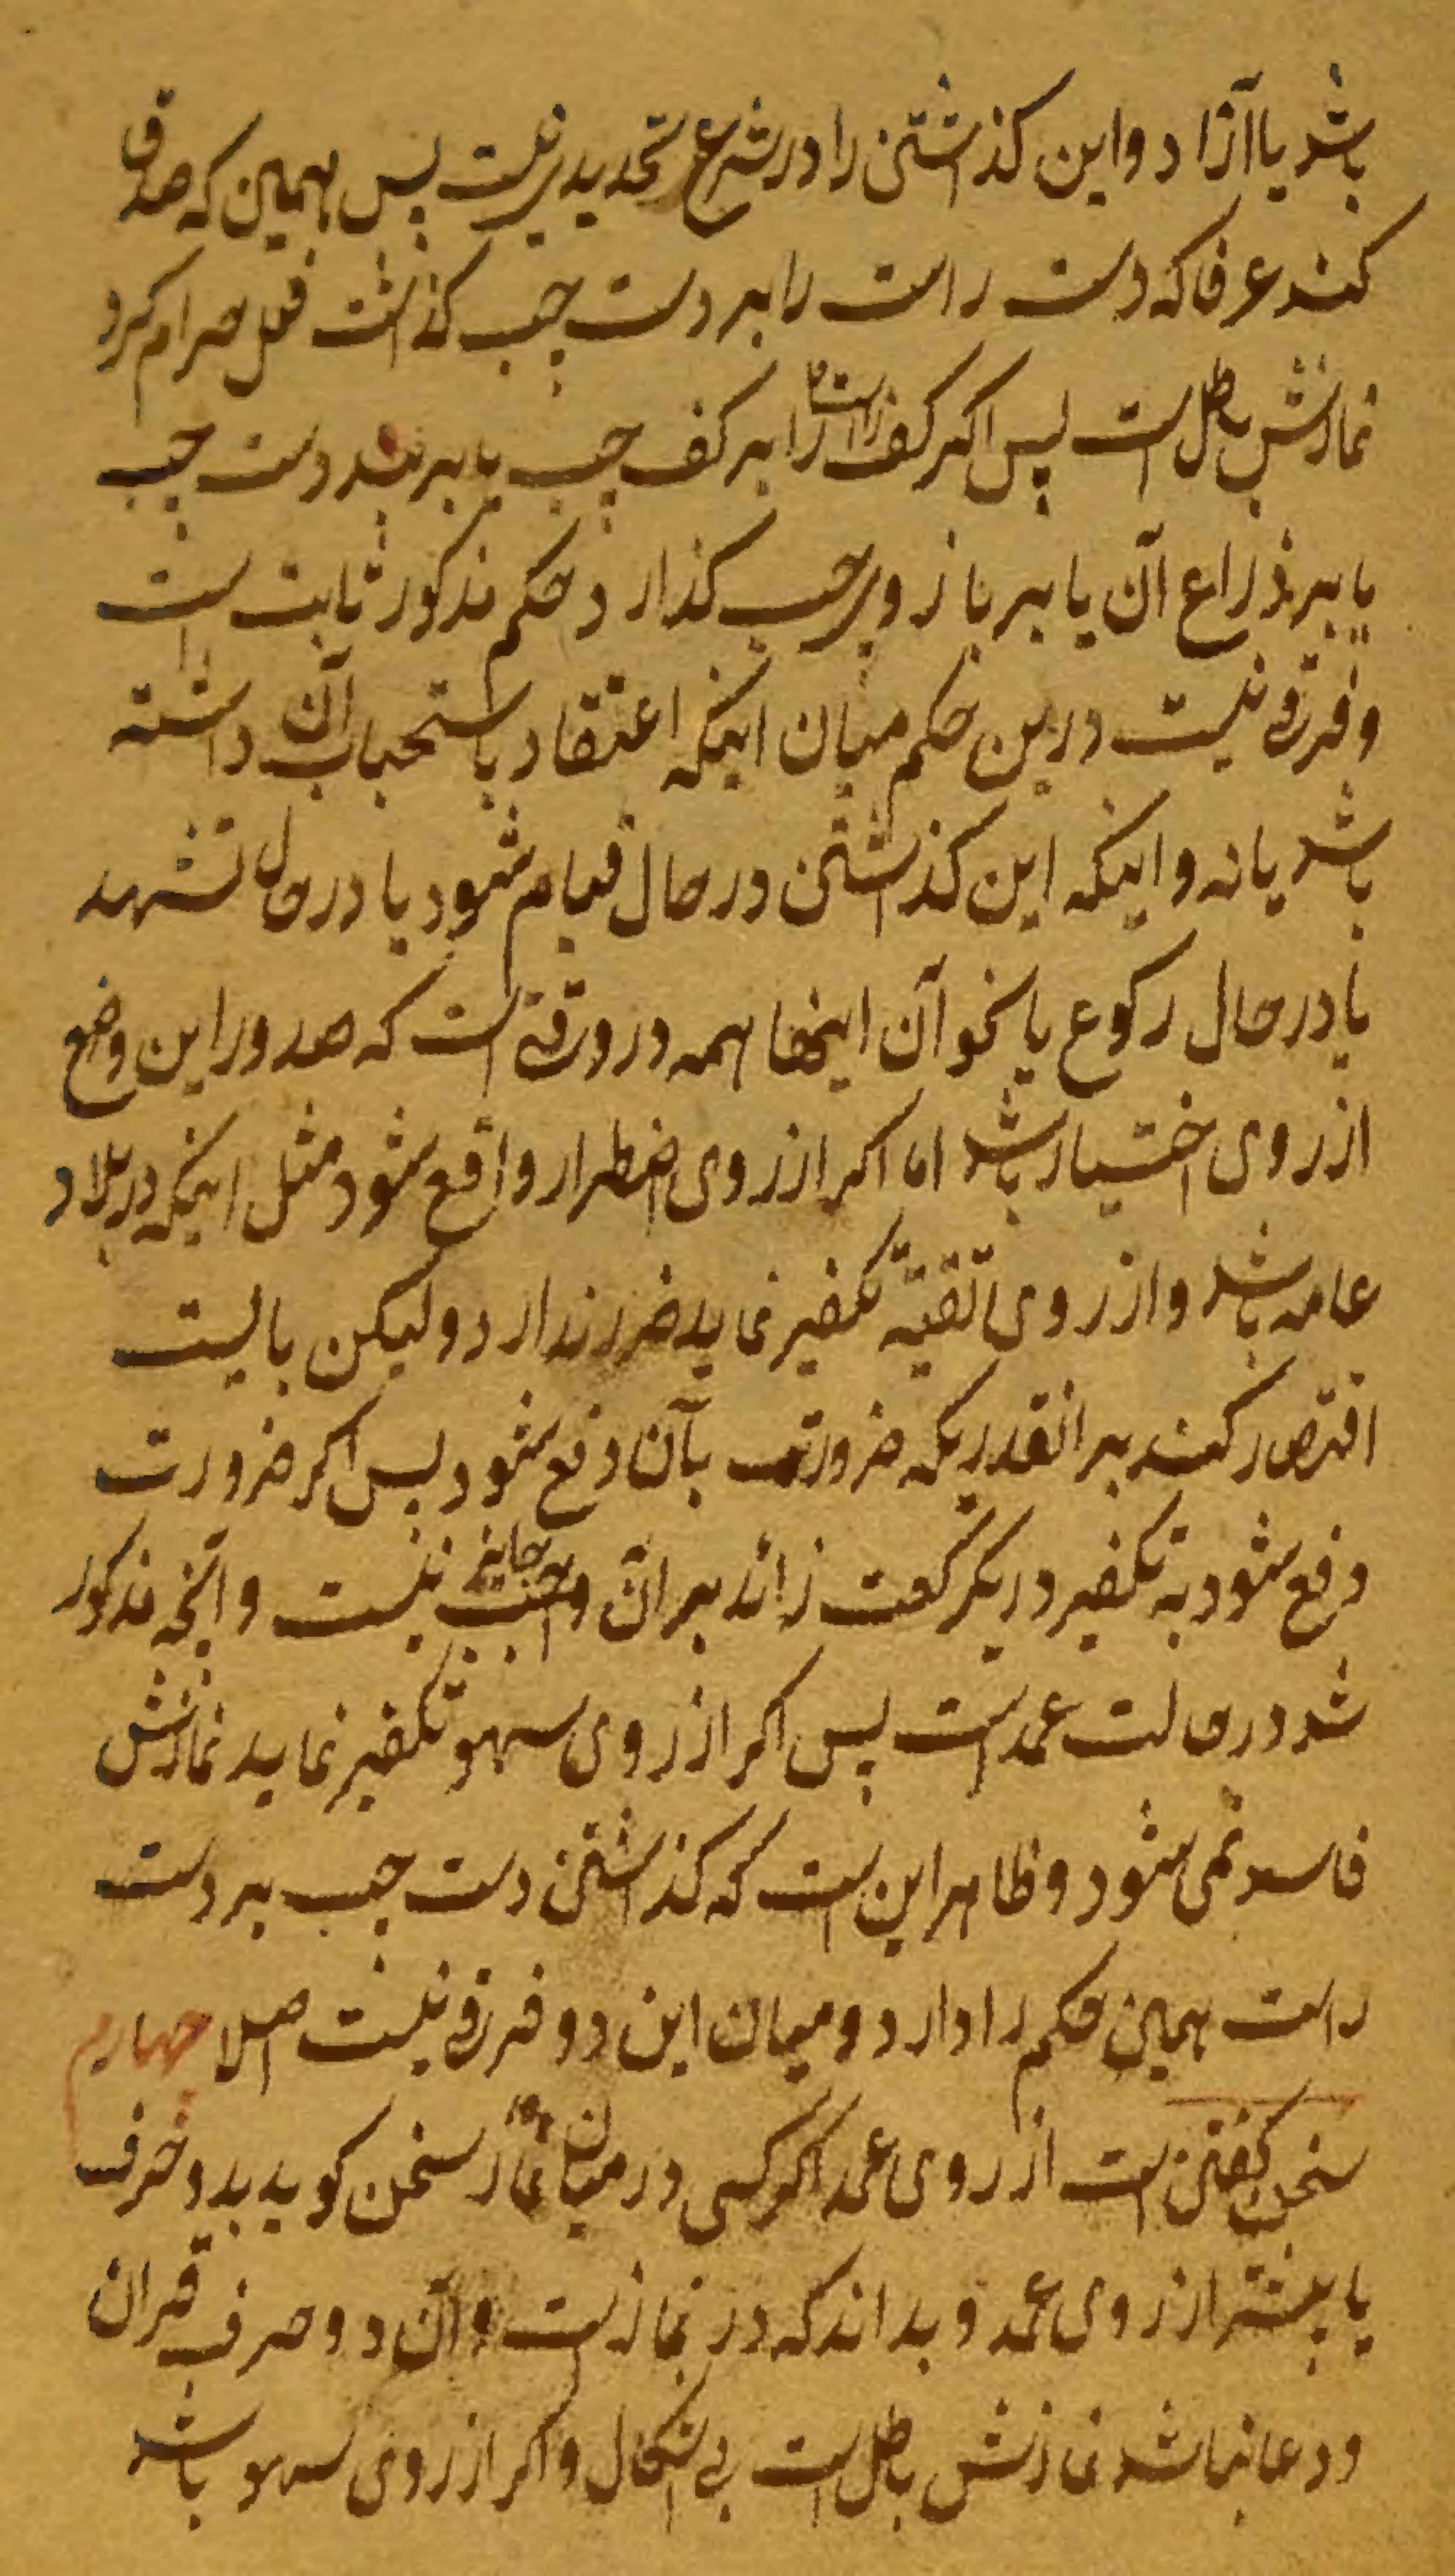 باشد یا آزاد و این کذاشتن را در شرع تحدیدی نیست پس همین که صدق
کند عرفا که دست راست را بر دست چپ کذاشت فعل حرام کرد
نمازش باطل است پس اکر کف راست را بر کف چپ یا بر بند دست چپ
یا بر ذراع آن یا بر بازوی چپ کذارد حکم مذکور ثابت است
و فرقی نیست درین حکم میان اینکه اعتقاد باستحباب آن داشته
باشد یا نه و اینکه این کذاشتن در حال قیام شود یا در حال تشهد
یا در حال رکوع یا نحو آن اینها همه در وقتی است که صدور این وضع
از روی اختیار باشد اما اکر از روی اضطرار واقع شود مثل اینکه در بلاد
عامه باشد و از روی تقیّه تکفیر نماید ضرر ندارد و لیکن بایست
اقتصار کند بر انقدریکه ضرورت بآن دفع شود پس اکر ضرورت
دفع شود به تکفیر در یکرکعت زائد بر آن جایز نیست و آنچه مذکور
شد در حالت عمد است پس اکر از روی سهو تکفیر نماید نمازش
فاسد نمی شود و ظاهر این است که کذاشتن دست چپ بر دست
راست همین حکم را دارد و میان این دو فرقی نیست اصلا چهارم
سخن کفتن است از روی عمد اکر کسی در میان نماز سخن کوید بدو حرف
یا بیشتر از روی عمد و بداند که در نماز است و آن دو حرف قران
و دعا نباشد نمازش باطل است بی اشکال و اکر از روی سهو باشد